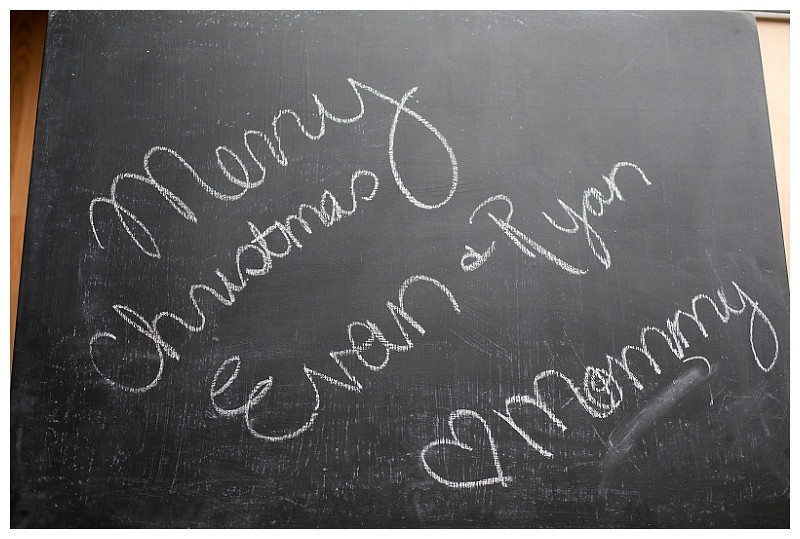 Merry
Christmas
Evan & Ryan
♡ Mommy